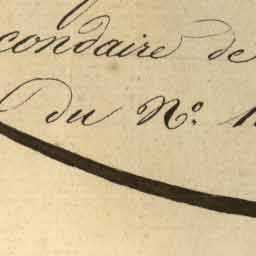 condaire de
du N.º 1